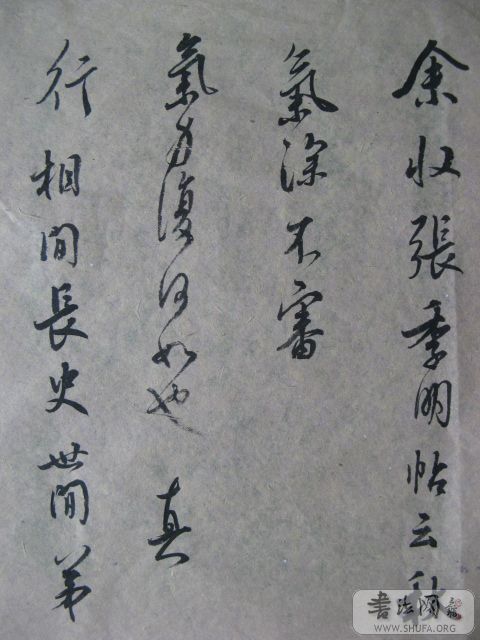 余收張季明帖云秋
氣深不審
氣力復何如也 真
行相間長史世間第
書法網
WWW.SHUFA.ORG